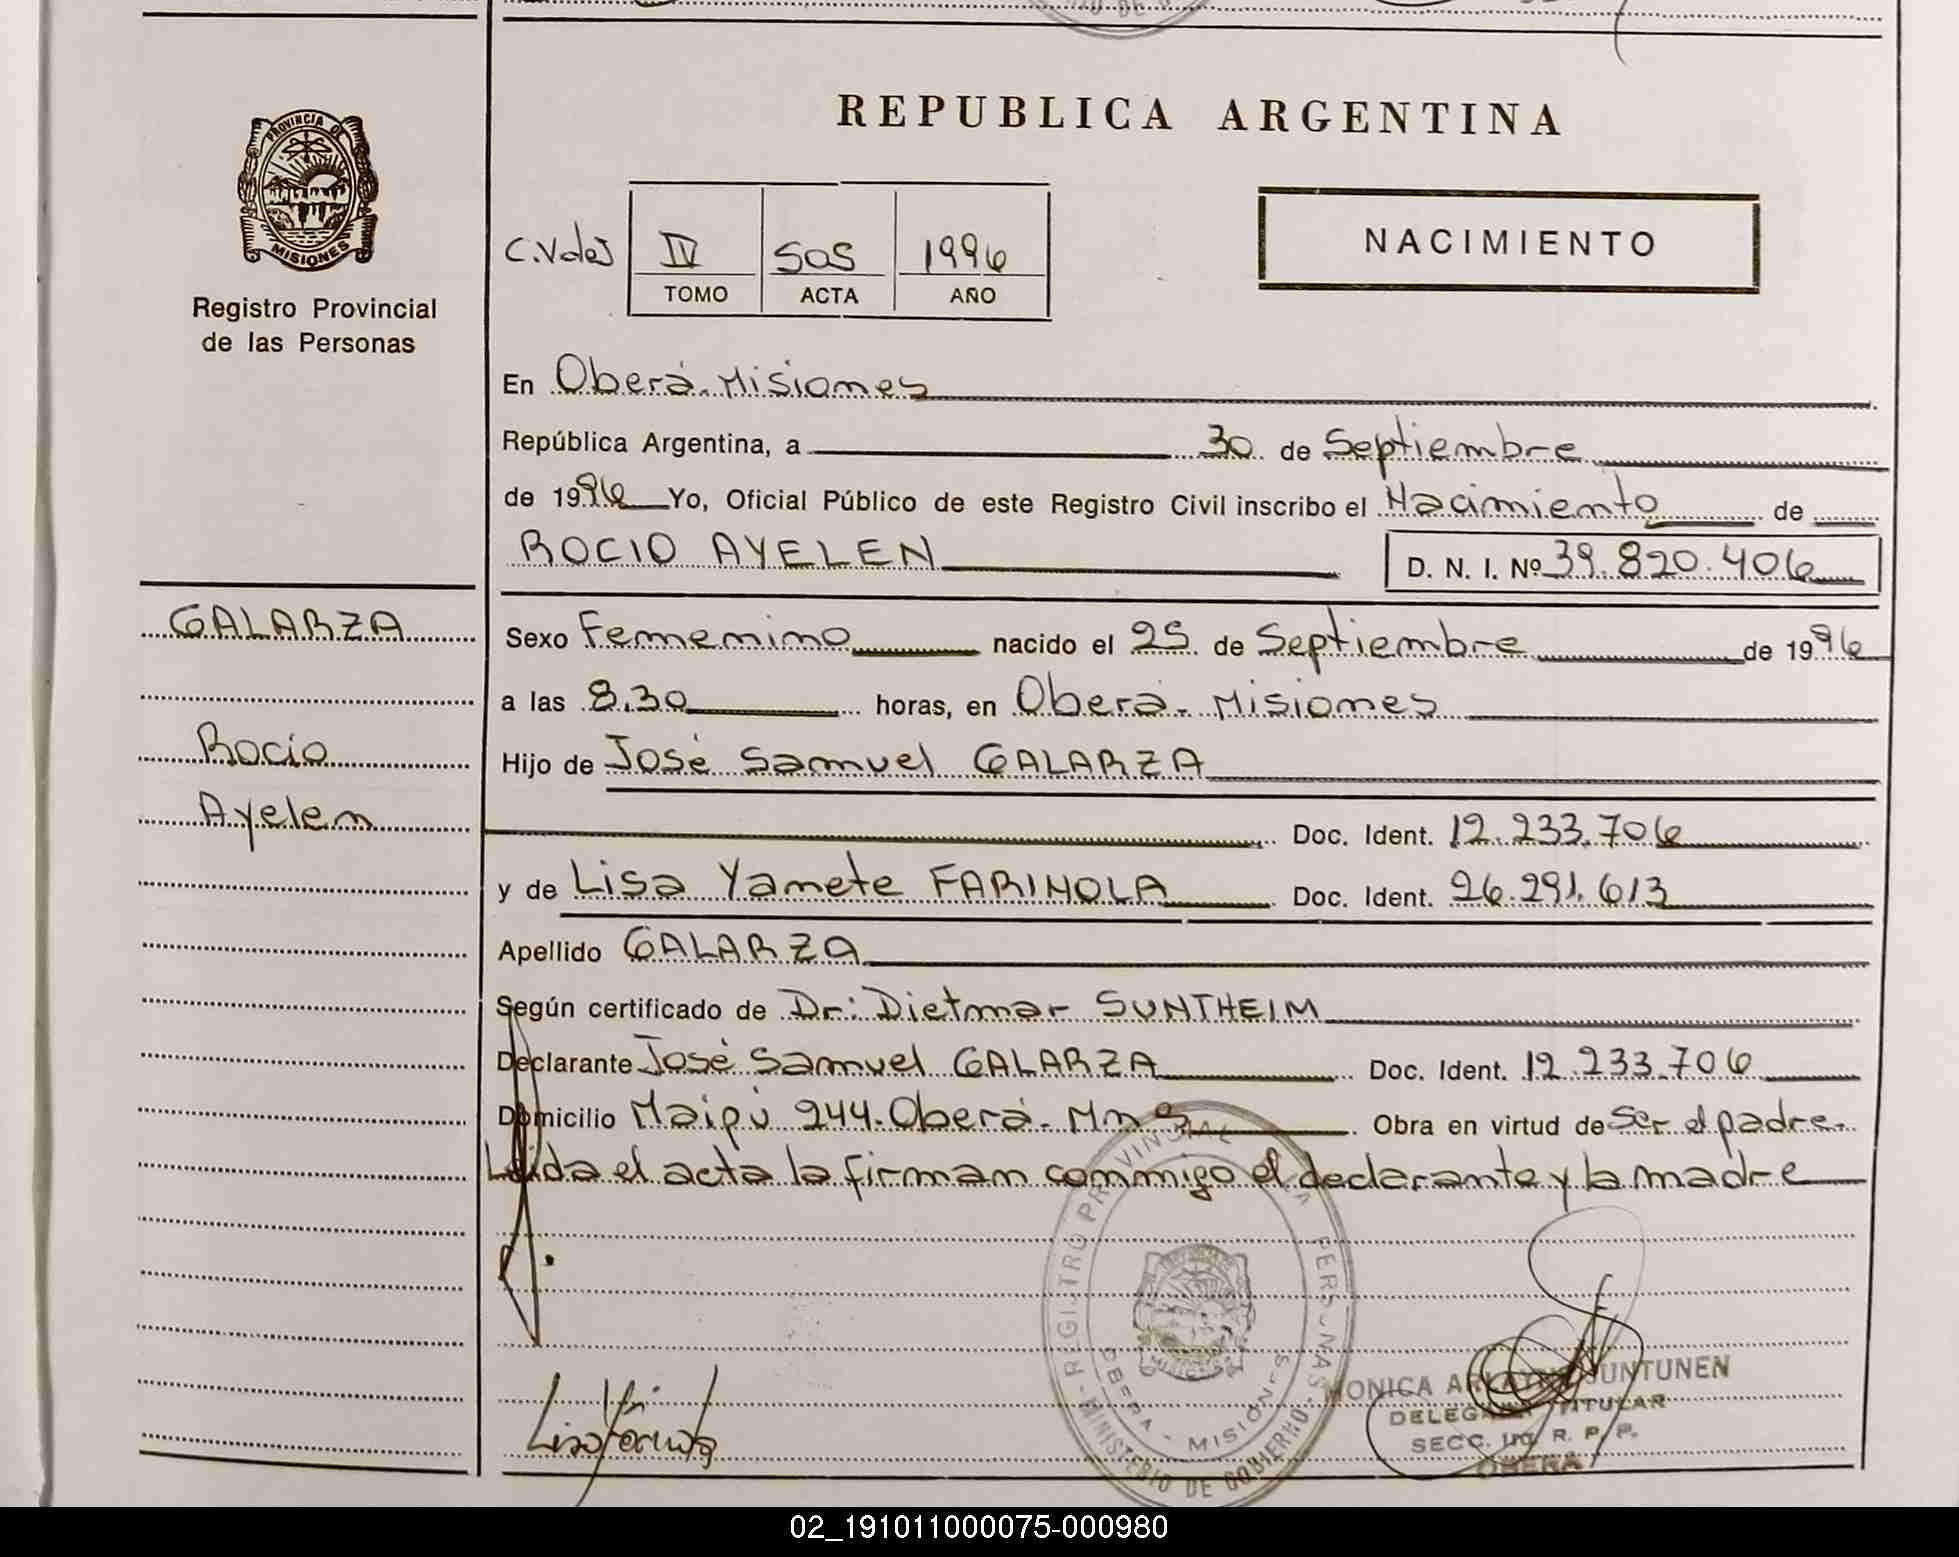 REPUBLICA ARGENTINA
PROVINCIA DE
MISIONES
Registro Provincial
de las Personas
C.Vdes IV 505 1996
TOMO ACTA AÑO
NACIMIENTO
En Oberá-Misiones
República Argentina, a 30 de Septiembre
de 1996 Yo, Oficial Público de este Registro Civil inscribo el Nacimiento de
ROCIO AYELEN D. N. I. Nº 39.820.406
GALARZA
Rocio
Ayelen
Sexo Femenino nacido el 25 de Septiembre de 1996
a las 8.30 horas, en Oberá - Misiones
Hijo de José Samuel GALARZA
Doc. Ident. 12.233.706
y de Lisa Yanete FARINOLA Doc. Ident. 26.291.613
Apellido GALARZA
Según certificado de Dr: Dietmar SUNTHEIM
Declarante José Samuel GALARZA Doc. Ident. 12.233.706
Domicilio Maipú 244-Oberá-Mnes Obra en virtud de Ser el padre.
Leida el acta la firman conmigo el declarante y la madre
REGISTRO PROVINCIAL PERSONAS
OBERA - MISIONES
MINISTERIO DE GOBIERNO
MONICA JUNTUNEN
DELEGADA TITULAR
SECC. R. P. P.
OBERA
02_191011000075-000980